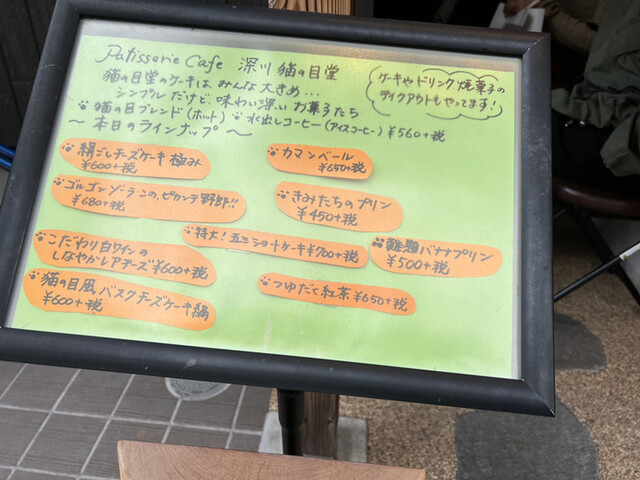 Patisserie Cafe 深川 猫の目堂
猫の目堂のケーキは、みんな大きめ…
シンプルだけど、味わい深い お菓子たち
猫の目ブレンド(ホット) 水出しコーヒー(アイスコーヒー) ¥560+税
〜本日のラインナップ〜
ケーキやドリンク 焼菓子の
テイクアウトもやってます!
絹ごしチーズケーキ 極み
¥600+税
カマンベール
¥650+税
ゴルゴンゾーラ この、ピカンテ野郎!!
¥680+税
きみたちのプリン
¥450+税
こだわり白ワインの
しなやかレアチーズ ¥600+税
特大! 五三ショートケーキ ¥700+税
難題バナナプリン
¥500+税
猫の目風 バスクチーズケーキ
¥600+税
つゆだく紅茶 ¥650+税